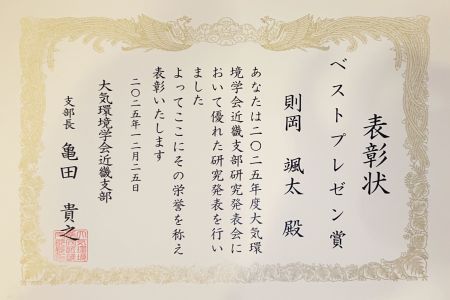 表彰状
ベストプレゼン賞
則岡 颯太 殿
あなたは二〇二五年度大気環
境学会近畿支部研究発表会に
おいて優れた研究発表を行い
ました
よってここにその栄誉を称え
表彰いたします
二〇二五年一二月二五日
大気環境学会近畿支部
支部長 亀田 貴之